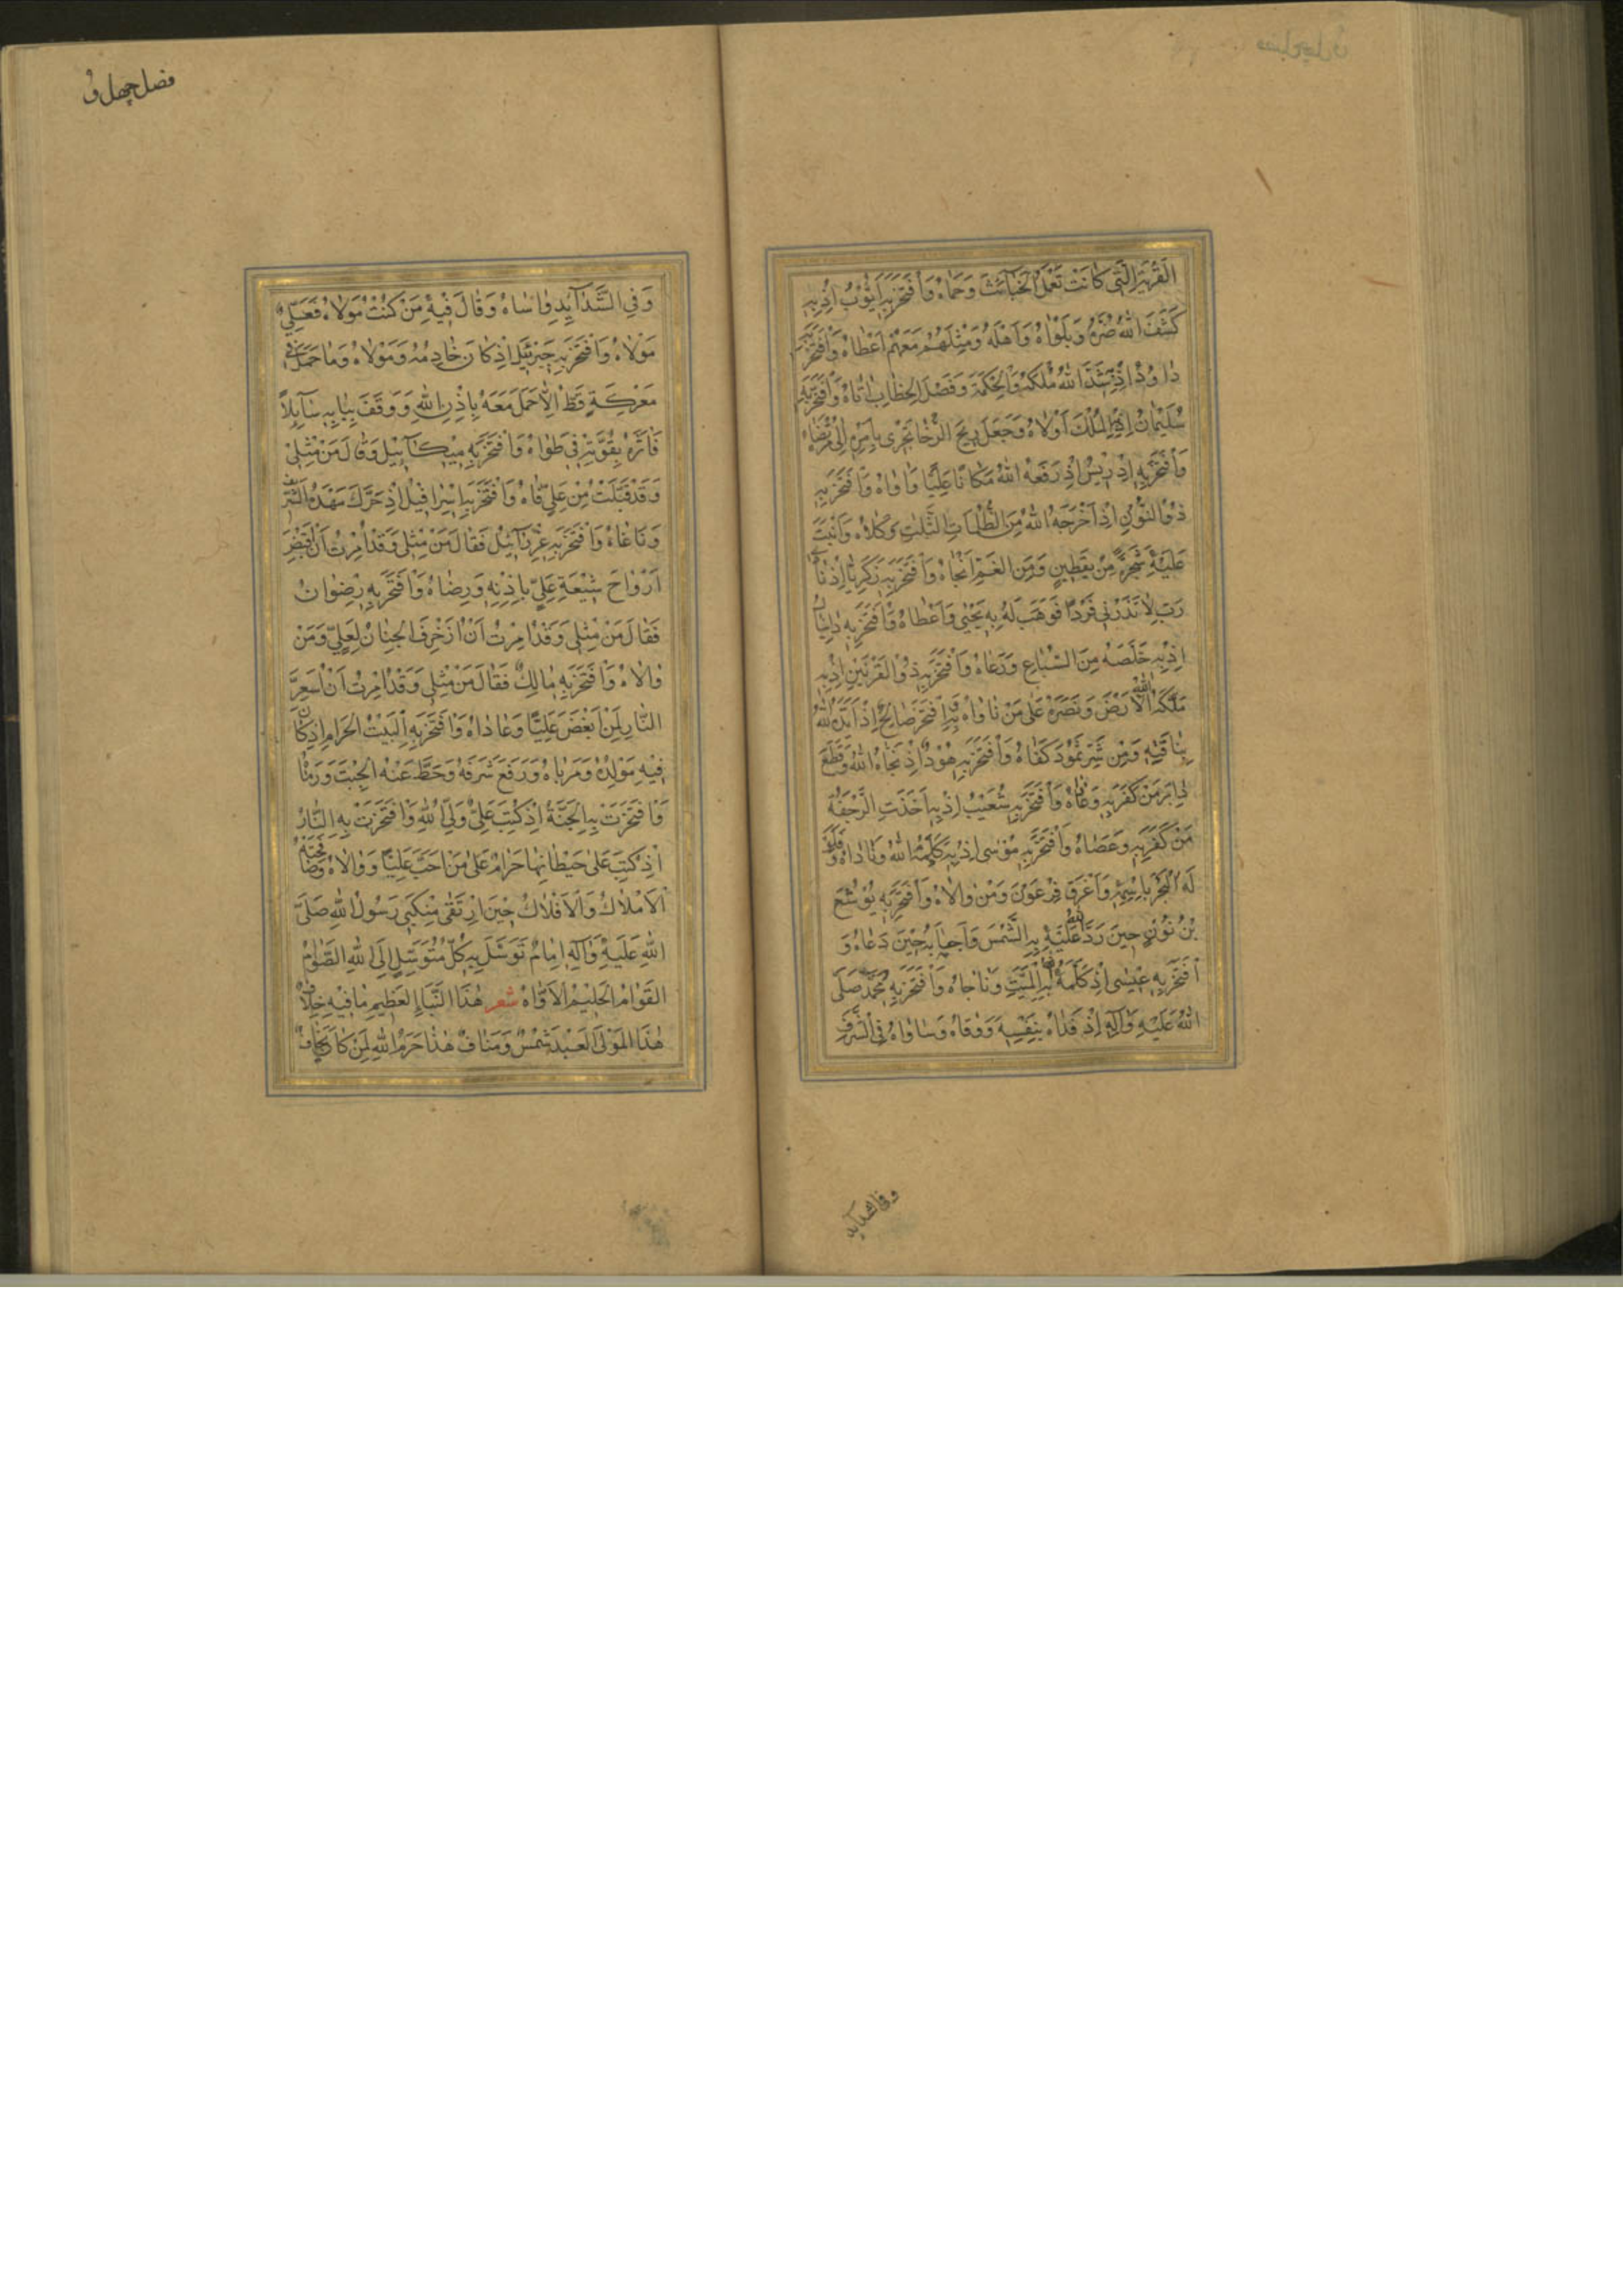 الْقَرْيَةِ الَّتِي كَانَتْ تَعْمَلُ الْخَبَائِثَ وَحَمَاهُ وَافْتَخَرَ بِهِ اَيُّوبُ اِذْ بِهِ
كَشَفَ اللهُ ضُرَّهُ وَبَلْوَاهُ وَاَهْلَهُ وَمِثْلَهُمْ مَعَهُمْ اَعْطَاهُ وَافْتَخَرَ بِهِ
دَاوُدُ اِذْ بِهِ شَدَّ اللهُ مُلْكَهُ وَالْحِكْمَةَ وَفَصْلَ الْخِطَابِ اٰتَاهُ وَافْتَخَرَ بِهِ
سُلَيْمَانُ اِذْ بِهِ الْمُلْكَ اَوْلَاهُ وَجَعَلَ رِيحَ الرُّخَا تَجْرِي بِاَمْرِهِ اِلٰى
وَافْتَخَرَ بِهِ اِدْرِيسُ اِذْ رَفَعَهُ اللهُ مَكَانًا عَلِيًّا وَاٰوَاهُ وَافْتَخَرَ بِهِ
ذُوالنُّونِ اِذْ اَخْرَجَهُ اللهُ مِنَ الظُّلُمَاتِ الثَّلٰثِ وَكَلَاهُ وَاَنْبَتَ
عَلَيْهِ شَجَرَةً مِنْ يَقْطِينٍ وَمِنَ الْغَمِّ اَنْجَاهُ وَافْتَخَرَ بِهِ زَكَرِيَّا اِذْ نَادٰى
رَبِّ لَا تَذَرْنِي فَرْدًا فَوَهَبَ لَهُ بِهِ يَحْيٰى وَاَعْطَاهُ وَافْتَخَرَ بِهِ دَانِيَالُ
اِذْ بِهِ خَلَّصَهُ مِنَ السِّبَاعِ وَرَعَاهُ وَافْتَخَرَ بِهِ ذُوالْقَرْنَيْنِ اِذْ بِهِ
مَلَّكَهُ اللهُ الْاَرْضَ وَنَصَرَهُ عَلٰى مَنْ نَاوَاهُ وَافْتَخَرَ بِهِ صَالِحٌ اِذْ اَيَّدَهُ اللهُ
بِنَاقَتِهِ وَمِنْ شَرِّ ثَمُودَ كَفَاهُ وَافْتَخَرَ بِهِ هُودٌ اِذْ نَجَّاهُ اللهُ وَقَطَعَ
دَابِرَ مَنْ كَفَرَ بِهِ وَافْتَخَرَ بِهِ شُعَيْبُ اِذْ بِهِ اَخَذَتِ الرَّجْفَةُ
مَنْ كَفَرَ بِهِ وَعَصَاهُ وَافْتَخَرَ بِهِ مُوسٰى اِذْ بِهِ كَلَّمَهُ اللهُ وَنَادَاهُ وَفَلَقَ
لَهُ الْبَحْرَ بِاسْمِهِ وَاَغْرَقَ فِرْعَوْنَ وَمَنْ وَالَاهُ وَافْتَخَرَ بِهِ يُوشَعُ
بْنُ نُونٍ حِينَ رَدَّ اللهُ عَلَيْهِ بِهِ الشَّمْسَ وَاَجَابَهُ حِينَ دَعَاهُ وَ
افْتَخَرَ بِهِ عِيسٰى اِذْ كَلَّمَهُ بِهِ الْمَيِّتُ وَنَاجَاهُ وَافْتَخَرَ بِهِ مُحَمَّدٌ صَلَّى
اللهُ عَلَيْهِ وَاٰلِهِ اِذْ فَدَاهُ بِنَفْسِهِ وَوَقَاهُ وَسَاوَاهُ فِي الشَّرَفِ
وفی الشدآید
فصل چهل و
وَفِي الشَّدَآيِدِ وَاسَاهُ وَقَالَ فِيهِ مَنْ كُنْتُ مَوْلَاهُ فَعَلِيٌّ
مَوْلَاهُ وَافْتَخَرَ بِهِ جَبْرَئِيلُ اِذْ كَانَ خَادِمُهُ وَمَوْلَاهُ وَمَا حَمَلَ فِي
مَعْرِكَةٍ قَطُّ اِلَّا حَمَلَ مَعَهُ بِاِذْنِ اللهِ وَوَقَفَ بِبَابِهِ سَآئِلًا
فَاٰثَرَهُ بِقُوَّتِهِ فِي طَوَاهُ وَافْتَخَرَ بِهِ مِيكَآئِيلُ وَقَالَ مَنْ مِثْلِي
وَقَدْ قَبَّلْتُ مِنْ عَلِيٍّ فَاهُ وَافْتَخَرَ بِهِ اِسْرَافِيلُ اِذْ حَرَّكَ مَهْدَهُ الشَّرِيفَ
وَنَاغَاهُ وَافْتَخَرَ بِهِ عِزْرَآئِيلُ فَقَالَ مَنْ مِثْلِي وَقَدْ اُمِرْتُ اَنْ اَقْبِضَ
اَرْوَاحَ شِيْعَةِ عَلِيٍّ بِاِذْنِهِ وَرِضَاهُ وَافْتَخَرَ بِهِ رِضْوَانُ
فَقَالَ مَنْ مِثْلِي وَقَدْ اُمِرْتُ اَنْ اُزَخْرِفَ الْجِنَانَ لِعَلِيٍّ وَمَنْ
وَالَاهُ وَافْتَخَرَ بِهِ مَالِكٌ فَقَالَ مَنْ مِثْلِي وَقَدْ اُمِرْتُ اَنْ اُسَعِّرَ
النَّارَ لِمَنْ اَبْغَضَ عَلِيًّا وَعَادَاهُ وَافْتَخَرَ بِهِ الْبَيْتُ الْحَرَامُ اِذْ كَانَ
فِيهِ مَوْلِدُهُ وَمَرْبَاهُ وَرَفَعَ شَرَفَهُ وَحَطَّ عَنْهُ الْجِبْتَ وَرَمَاهُ
وَافْتَخَرَتْ بِهِ الْجَنَّةُ اِذْ كُتِبَ عَلِيٌّ وَلِيُّ اللهِ وَافْتَخَرَتْ بِهِ النَّارُ
اِذْ كُتِبَ عَلٰى حِيطَانِهَا حَرَامٌ عَلٰى مَنْ اَحَبَّ عَلِيًّا وَوَالَاهُ
الْاَمْلَاكُ وَالْاَفْلَاكُ حِينَ ارْتَقٰى مَنْكِبَيْ رَسُولِ اللهِ صَلَّى
اللهُ عَلَيْهِ وَاٰلِهِ اِمَامٌ تَوَسَّلَ بِهِ كُلُّ مُتَوَسِّلٍ اِلَى اللهِ الصَّوَّامُ
الْقَوَّامُ الْحَلِيمُ الْاَوَّاهُ شعر هٰذَا النَّبَأُ الْعَظِيمُ مَا فِيهِ خِلَافٌ
هٰذَا الْمَوْلٰى لِعَبْدِ شَمْسٍ وَمَنَافٍ هٰذَا حَرَمُ اللهِ لِمَنْ كَانَ يَخَافُ